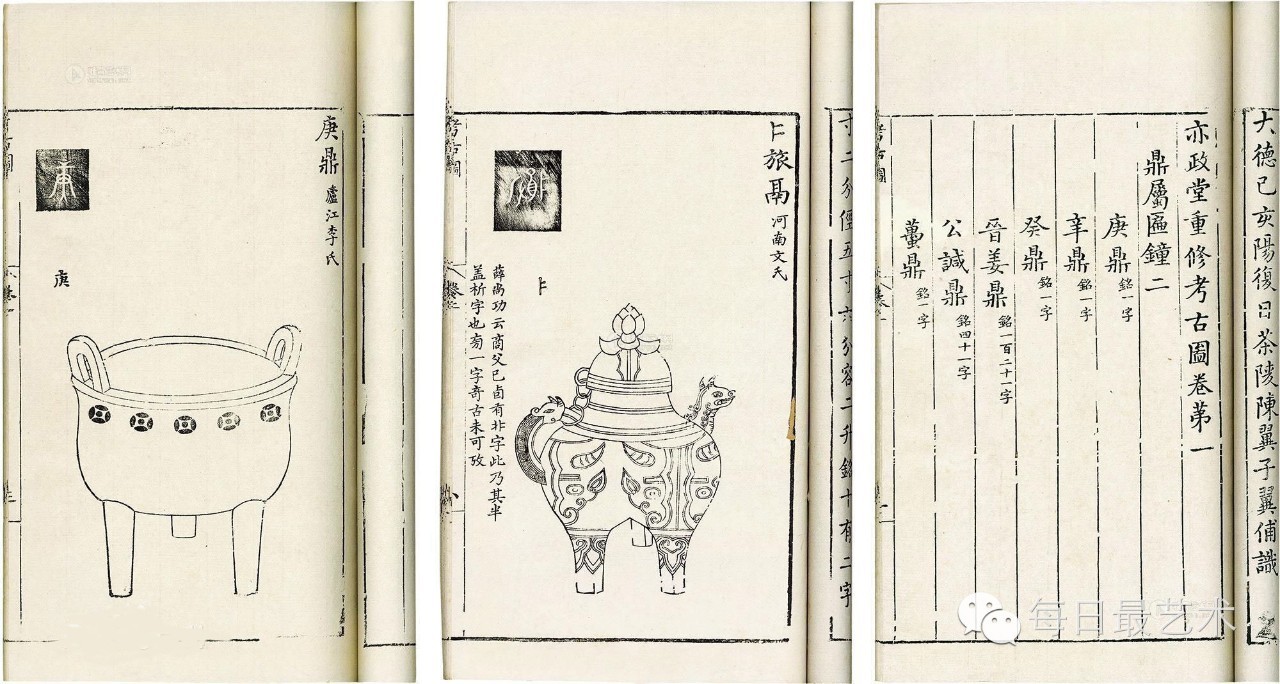 庚鼎 廬江李氏
庚
考古圖
寸二分徑五寸六分容二升銘十有二字
旅鬲 河南文氏
薛尚功云商父已卣有非字此乃其半
盖析字也旁一字奇古未可攷
考古圖
大德已亥陽復日茶陵陳翼子翼俌識
亦政堂重修考古圖卷第一
鼎屬匾鐘二
庚鼎 銘一字
辛鼎 銘一字
癸鼎 銘一字
晉姜鼎 銘一百二十一字
公諴鼎 銘四十一字
蠆鼎 銘一字
考古圖
每日最艺术